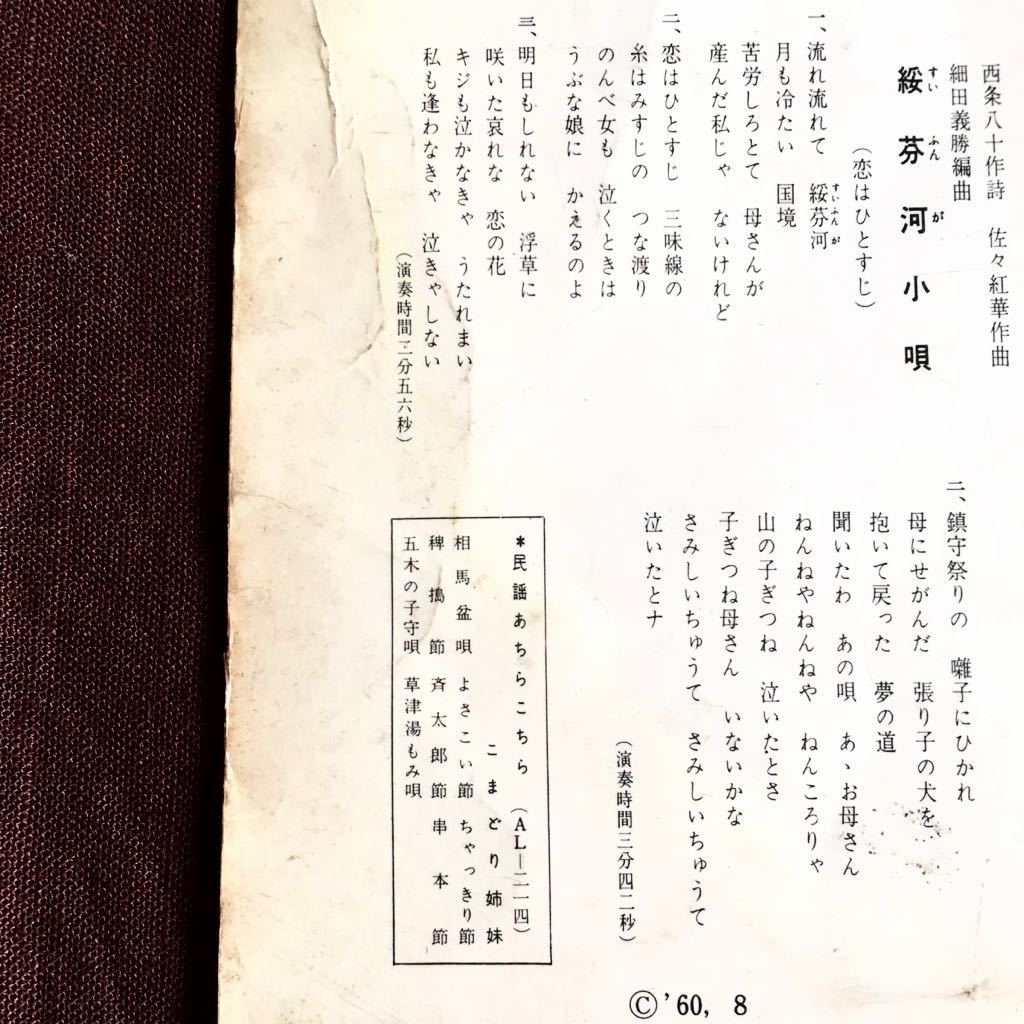 西条八十作詩　佐々紅華作曲
細田義勝編曲
綏芬河小唄
すいふんが
（恋はひとすじ）
一、流れ流れて　綏芬河
すいふんが
月も冷たい　国境
苦労しろとて　母さんが
産んだ私じゃ　ないけれど
二、恋はひとすじ　三味線の
糸はみすじの　つな渡り
のんべ女も　泣くときは
うぶな娘に　かえるのよ
三、明日もしれない　浮草に
咲いた哀れな　恋の花
キジも泣かなきゃ　うたれまい
私も逢わなきゃ　泣きゃしない
（演奏時間二分五六秒）
二、鎮守祭りの　囃子にひかれ
母にせがんだ　張り子の犬を
抱いて戻った　夢の道
聞いたわ　あの唄　あゝお母さん
ねんねやねんねや　ねんころりゃ
山の子ぎつね　泣いたとさ
子ぎつね母さん　いないかな
さみしいちゅうて　さみしいちゅうて
泣いたとナ
（演奏時間三分四二秒）
＊民謡あちらこちら（AL―二一四）
こまどり姉妹
相馬盆唄　よさこい節　ちゃっきり節
稗搗節　斉太郎節　串本節
五木の子守唄　草津湯もみ唄
Ⓒ '60, 8